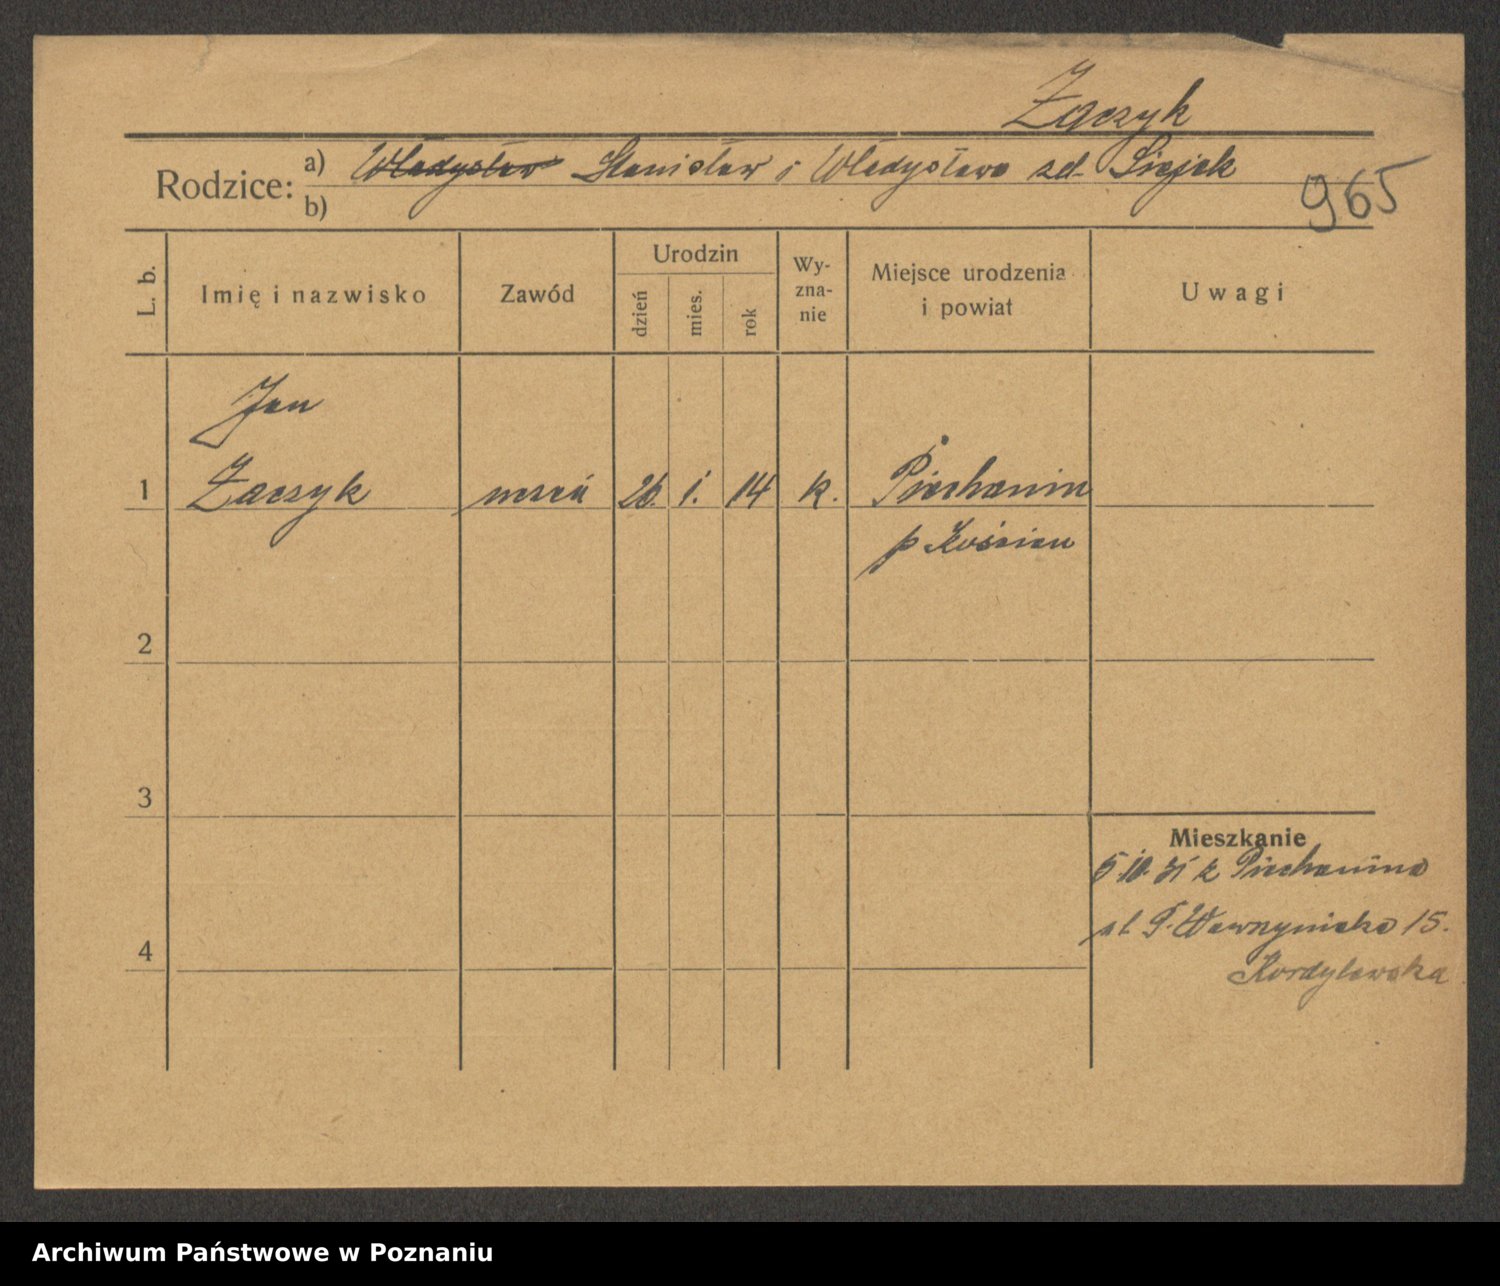 Zaczyk
Rodzice: a) Władysław Stanisław i Władysława zd. Siejek
b)
965
L. b. Imię i nazwisko Zawód Urodzin dzień mies. rok Wy-zna-nie Miejsce urodzenia i powiat Uwagi
Jan
1 Zaczyk uczeń 26. 1. 14 k. Piechanin
p Kościan
2
3
Mieszkanie
5 10. 31 z Piechanina
ul. Ś. Wawrzyniaka 15.
4
Kordylewska
Archiwum Państwowe w Poznaniu